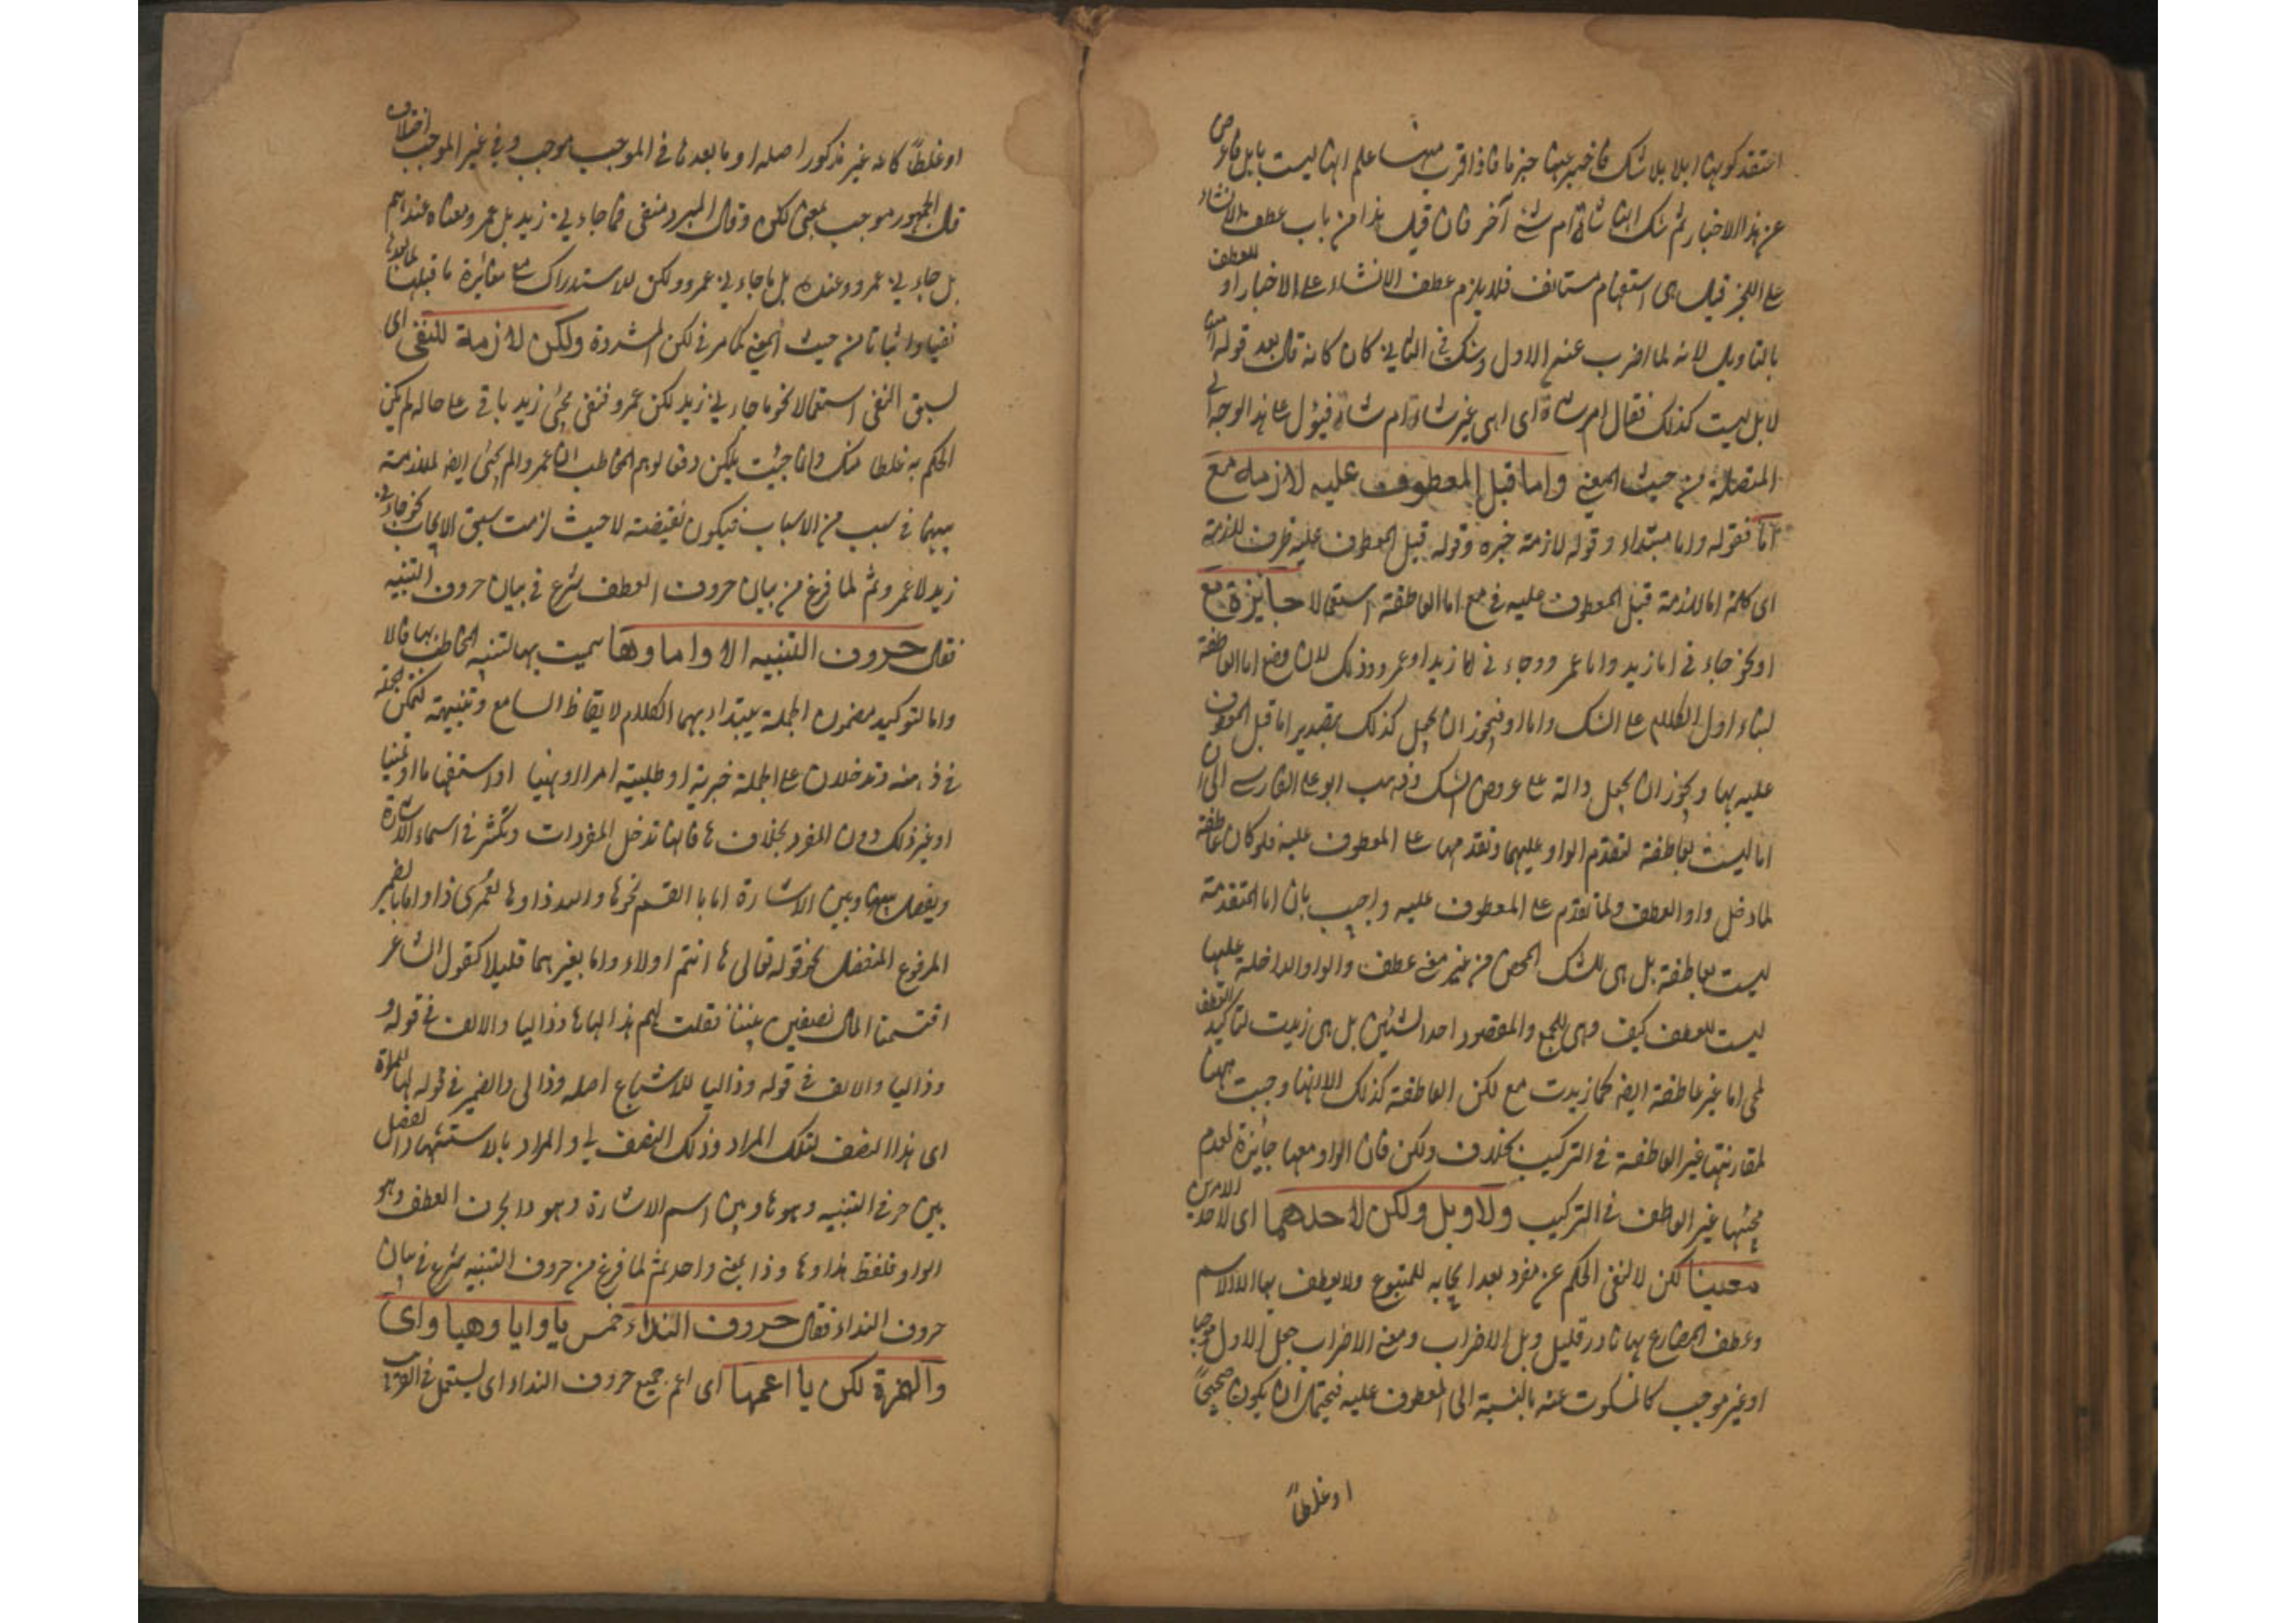 اعتقد كونها ابلا بلا شك فاخبر عنها جزما فاذا قرب منها علم انها ليست بابل فاعرض
عن هذا الاخبار ثم شك انها شاة ام شئ آخر فان قيل هذا من باب عطف الانشاء
على الخبر قيل هى استفهام مستانف فلا يلزم عطف الانشاء على الاخبار او للعطف
بالتاويل لانه لما اضرب عن الاول وشك فى الثانى كان كانه قال بعد قوله
لا بل ليست كذلك فقال ام شاة اى اهى غير شاة ام شاة فيؤل على هذا الوجه الى
المتصلة من حيث المعنى واما قبل المعطوف عليه لازمة مع
اما فقوله واما مبتداء وقوله لازمة خبره وقوله قبل المعطوف عليه ظرف للازمة
اى كلمة اما لازمة قبل المعطوف عليه فى مع اما العاطفة استعمالا جايزة مع
او نحو جاء نى اما زيد واما عمرو وجاء نى اما زيد او عمرو وذلك لان وضع اما العاطفة
لبناء اول الكلام على الشك واما او فيجوز ان يجعل كذلك بتقدير اما قبل المعطوف
عليه بها ويجوز ان يجعل دالة على عروض الشك وذهب ابو على الفارسى الى ان
اما ليست بعاطفة لتقدم الواو عليها وتقدمها على المعطوف عليه فلو كان عاطفة
لما دخل واو العطف ولما تقدم على المعطوف عليه واجيب بان اما المتقدمة
ليست بعاطفة بل هى للشك المحض من غير معنى عطف والواو الداخلة عليها
ليست للعطف كيف وهى للجمع والمقصود احد الشيئين بل هى زيدت لتاكيد العطف
اما غير عاطفة ايضه كما زيدت مع لكن العاطفة كذلك الا انها وجبت ههنا
لمقارنتها غير العاطفة فى التركيب بخلاف ولكن فان الواو معها جائزة لعدم
مجيئها غير العاطف فى التركيب ولا وبل ولكن لاحدهما اى لاحد الامرين
معينا لكن لا لنفى الحكم عن مفرد بعد ايجابه للمتبوع ولا يعطف بها الا الاسم
وعطف المضارع بها نادر قليل وبل للاضراب ومعنى الاضراب جعل الاول موجبا
او غير موجب كالمسكوت عنه بالنسبة الى المعطوف عليه فيحتمل ان يكون صحيحا
او غلطاً
او غلطاً كانه غير مذكور اصله او ما بعدها فى الموجب موجب وفى غير الموجب اختلاف
قال الجمهور موجب بمعنى لكن وقال المبرد منفى فما جاء نى زيد بل عمرو معناه عندهم
بل جاء نى عمرو وعنده بل ما جاء نى عمرو ولكن للاستدراك مع مغائرة ما قبلها لما بعدها
نفيا واثباتا من حيث المعنى كما مر فى لكن المشددة ولكن لازمة للنفى اى
لسبق النفى استعمالا نحو ما جاء نى زيد لكن عمرو فنفى مجئ زيد باق على حاله لم يكن
الحكم به غلطا منك وانما جئت بلكن دفعا لوهم المخاطب ان عمروا لم يجئ ايضه لملازمة
بينهما فى سبب من الاسباب فيكون نقيضته لا حيث لزمت سبق الايجاب نحو جاء نى
زيد لا عمرو ثم لما فرغ من بيان حروف العطف شرع فى بيان حروف التنبيه
فقال حروف التنبيه الا واما وها سميت بها لتنبيه المخاطب بها فالا
واما لتوكيد مضمون الجملة يبتداء بهما الكلام لايقاظ السامع وتنبيهه ليتمكن الجملة
فى ذهنه وتدخلان على الجملة خبرية او طلبية امرا او نهيا او استفهاما او تمنيا
او غير ذلك دون المفرد بخلاف ها فانها تدخل المفردات وتكثر فى اسماء الاشارة
ويفصل بينها وبين الاشارة اما بالقسم نحو ها والله ذا وها لعمرى ذا واما بالضمير
المرفوع المنفصل نحو قوله تعالى ها انتم اولاء واما بغيرهما قليلا كقول الشاعر
اقتسمنا المال نصفين بيننا فقلت لهم هذا لها ها وذاليا والالف فى قوله و
وذاليا والالف فى قوله وذاليا للاشباع اصله وذا لى والضمير فى قوله لها للمراة
اى هذا النصف لتلك المراد وذلك النصف لى والمراد بالاستشهاد الفصل
بين حرفى التنبيه وهو ها وبين اسم الاشارة وهو ذا بحرف العطف وهو
الواو فلفظ هذا وها وذا بمعنى واحد ثم لما فرغ من حروف التنبيه شرع فى بيان
حروف النداء فقال حروف النداء خمس يا وايا وهيا واى
والهمزة لكن يا اعمها اى اعم جميع حروف النداء اى يستعمل فى القريب